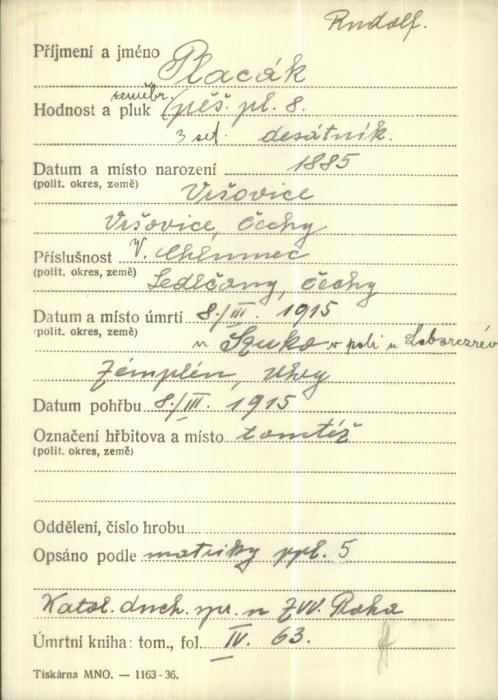 Rudolf.
Příjmení a jméno Placák
Hodnost a pluk (pěš. pl. 8.
3 set. desátník.
Datum a místo narození 1885
(polit. okres, země) Vršovice
Vršovice, Čechy
Příslušnost V. Chlumec
(polit. okres, země) Sedlčany, Čechy
Datum a místo úmrtí 8./III. 1915
(polit. okres, země) u Szuko v poli u Laborczrév
Zémplén, Uhry
Datum pohřbu 8./III. 1915
Označení hřbitova a místo tomtéž
(polit. okres, země)
Oddělení, číslo hrobu
Opsáno podle matriky ppl. 5
Katol. duch. spr. u ZVV. Praha
Úmrtní kniha: tom., fol. IV. 63.
Tiskárna MNO. — 1163-36.